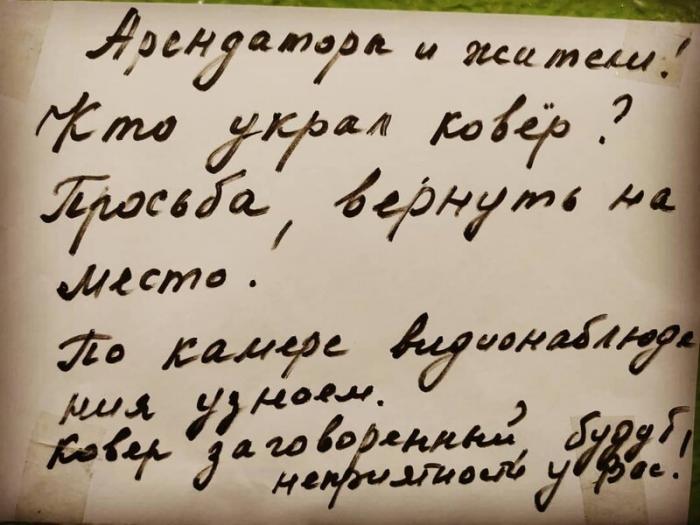 Арендаторы и жители!
Кто украл ковёр?
Просьба, вернуть на
место.
По камере видионаблюде
ния узнаем.
Ковер заговоренный, будут
неприятности у Вас.